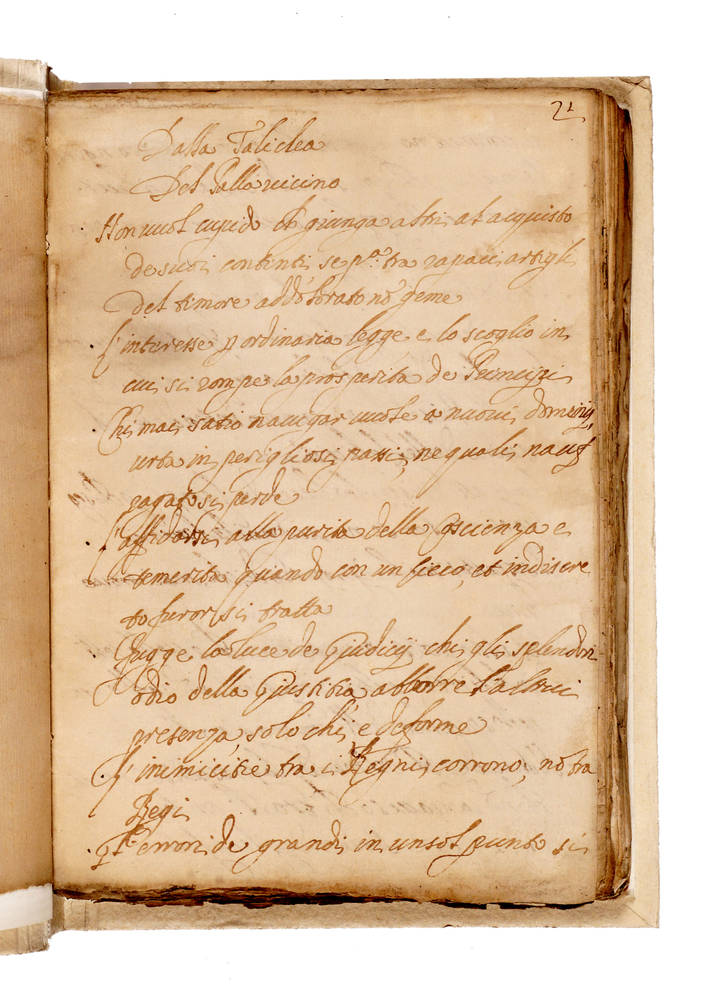 21
Dalla Taliclea
Del Pallavicino
Non vuol cupido ch giunga altri al acquisto
de suoi contenti se pa. tra rapaci artigli
del timore addolorato nō geme
L'interesse p ordinaria legge e lo scoglio in
cui si rompe la prosperita de Principi
Chi mai satio navigar vuole a nuovi dominij,
urta in perigliosi passi, ne quali nauf
ragato si perde
L'affidarsi alla purita della coscienza e
temerita quando con un cieco, et indiscre
to furor si tratta
Fugge la luce de Giudicij chi gli splendori
odio della Giustitia abborre l'altrui
presenza solo chi e deforme
L'inimicitie tra i Regni corrono, nō tra
Regi
Gl' errori de grandi in un sol punto si